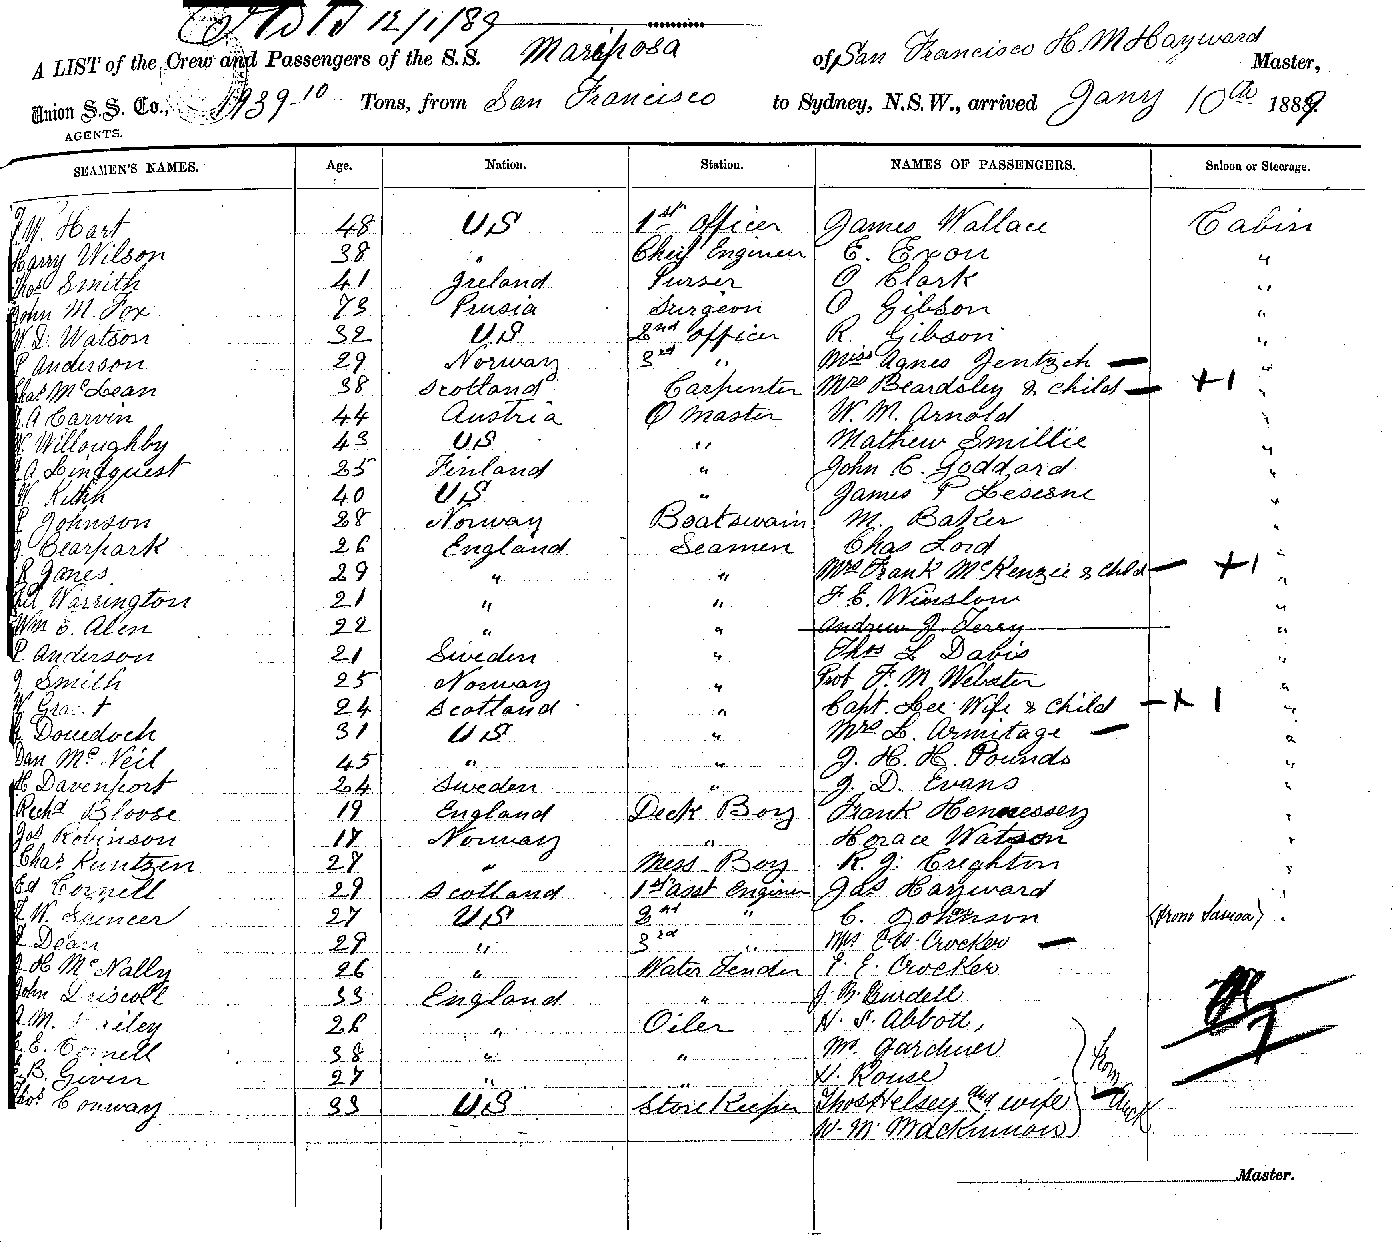 12/1/89
A LIST of the Crew and Passengers of the S.S. Mariposa of San Francisco H. M Hayward Master,
Union S.S. Co., 1939-10 Tons, from San Francisco to Sydney, N.S.W., arrived Jany 10th 1889.
AGENTS.
SEAMEN'S NAMES. Age. Nation. Station. NAMES OF PASSENGERS. Saloon or Steerage.
W. Hart 48 US 1st Officer James Wallace Cabin
Harry Wilson 38 " Chief Engineer E. Exon "
Thos Smith 41 Ireland Purser C Clark "
John M. Fox 73 Prusia Surgeon C Gibson "
W. D. Watson 32 US 2nd Officer R. Gibson "
P Anderson 29 Norway 3rd " Miss Agnes Jentzsch — "
Chas McLean 38 Scotland Carpenter Mrs Beardsley & Child — +1 "
A Carvin 44 Austria Q Master W. M. Arnold "
W. Willoughby 43 US " Mathew Smillie "
A Lindquest 25 Finland " John C. Goddard "
W. 40 US " James P Lesesne "
P Johnson 28 Norway Boatswain M. Baker "
J. Bearpark 26 England Seamen Chas Lord "
R Jones 29 " " Mrs Frank McKenzie & Child — +1 "
Warrington 21 " " F. E. Winslow "
Wm E. Alen 22 " " Andrew J. Terry "
P Anderson 21 Sweden " Thos L Davis "
J Smith 25 Norway " Prof F. M Webster "
W Grant 24 Scotland " Capt. Lee Wife & Child — + 1 "
Douedoch 31 US " Mrs L. Armitage — "
Dan McNeil 45 " " J. H. H. Pounds "
H Davenport 24 Sweden " J. D. Evans "
Richd Bloose 19 England Deck Boy Frank Hennessey "
Jos Robinson 17 Norway " Horace Watson "
Chas Kuntzen 27 " Mess Boy R. J. Creighton "
Ed Cornell 29 Scotland 1st Asst Engineer Jas Hayward "
W. Spencer 27 US 2nd " C. Johnson (From Samoa) "
Dean 29 " 3rd " Mrs E W Crocker —
J H McNally 26 " Water Tender F. E. Crocker
John Driscoll 33 England " J. B. Burdell
A M. 26 " Oiler H. S. Abbott,
E. Cornell 38 " " Mr Gardner
B. Given 27 " " H. Rouse
Thos Conway 33 US Store Keeper Thos Helsey and wife —
W. M. Mackinnon
From Auck
Master.